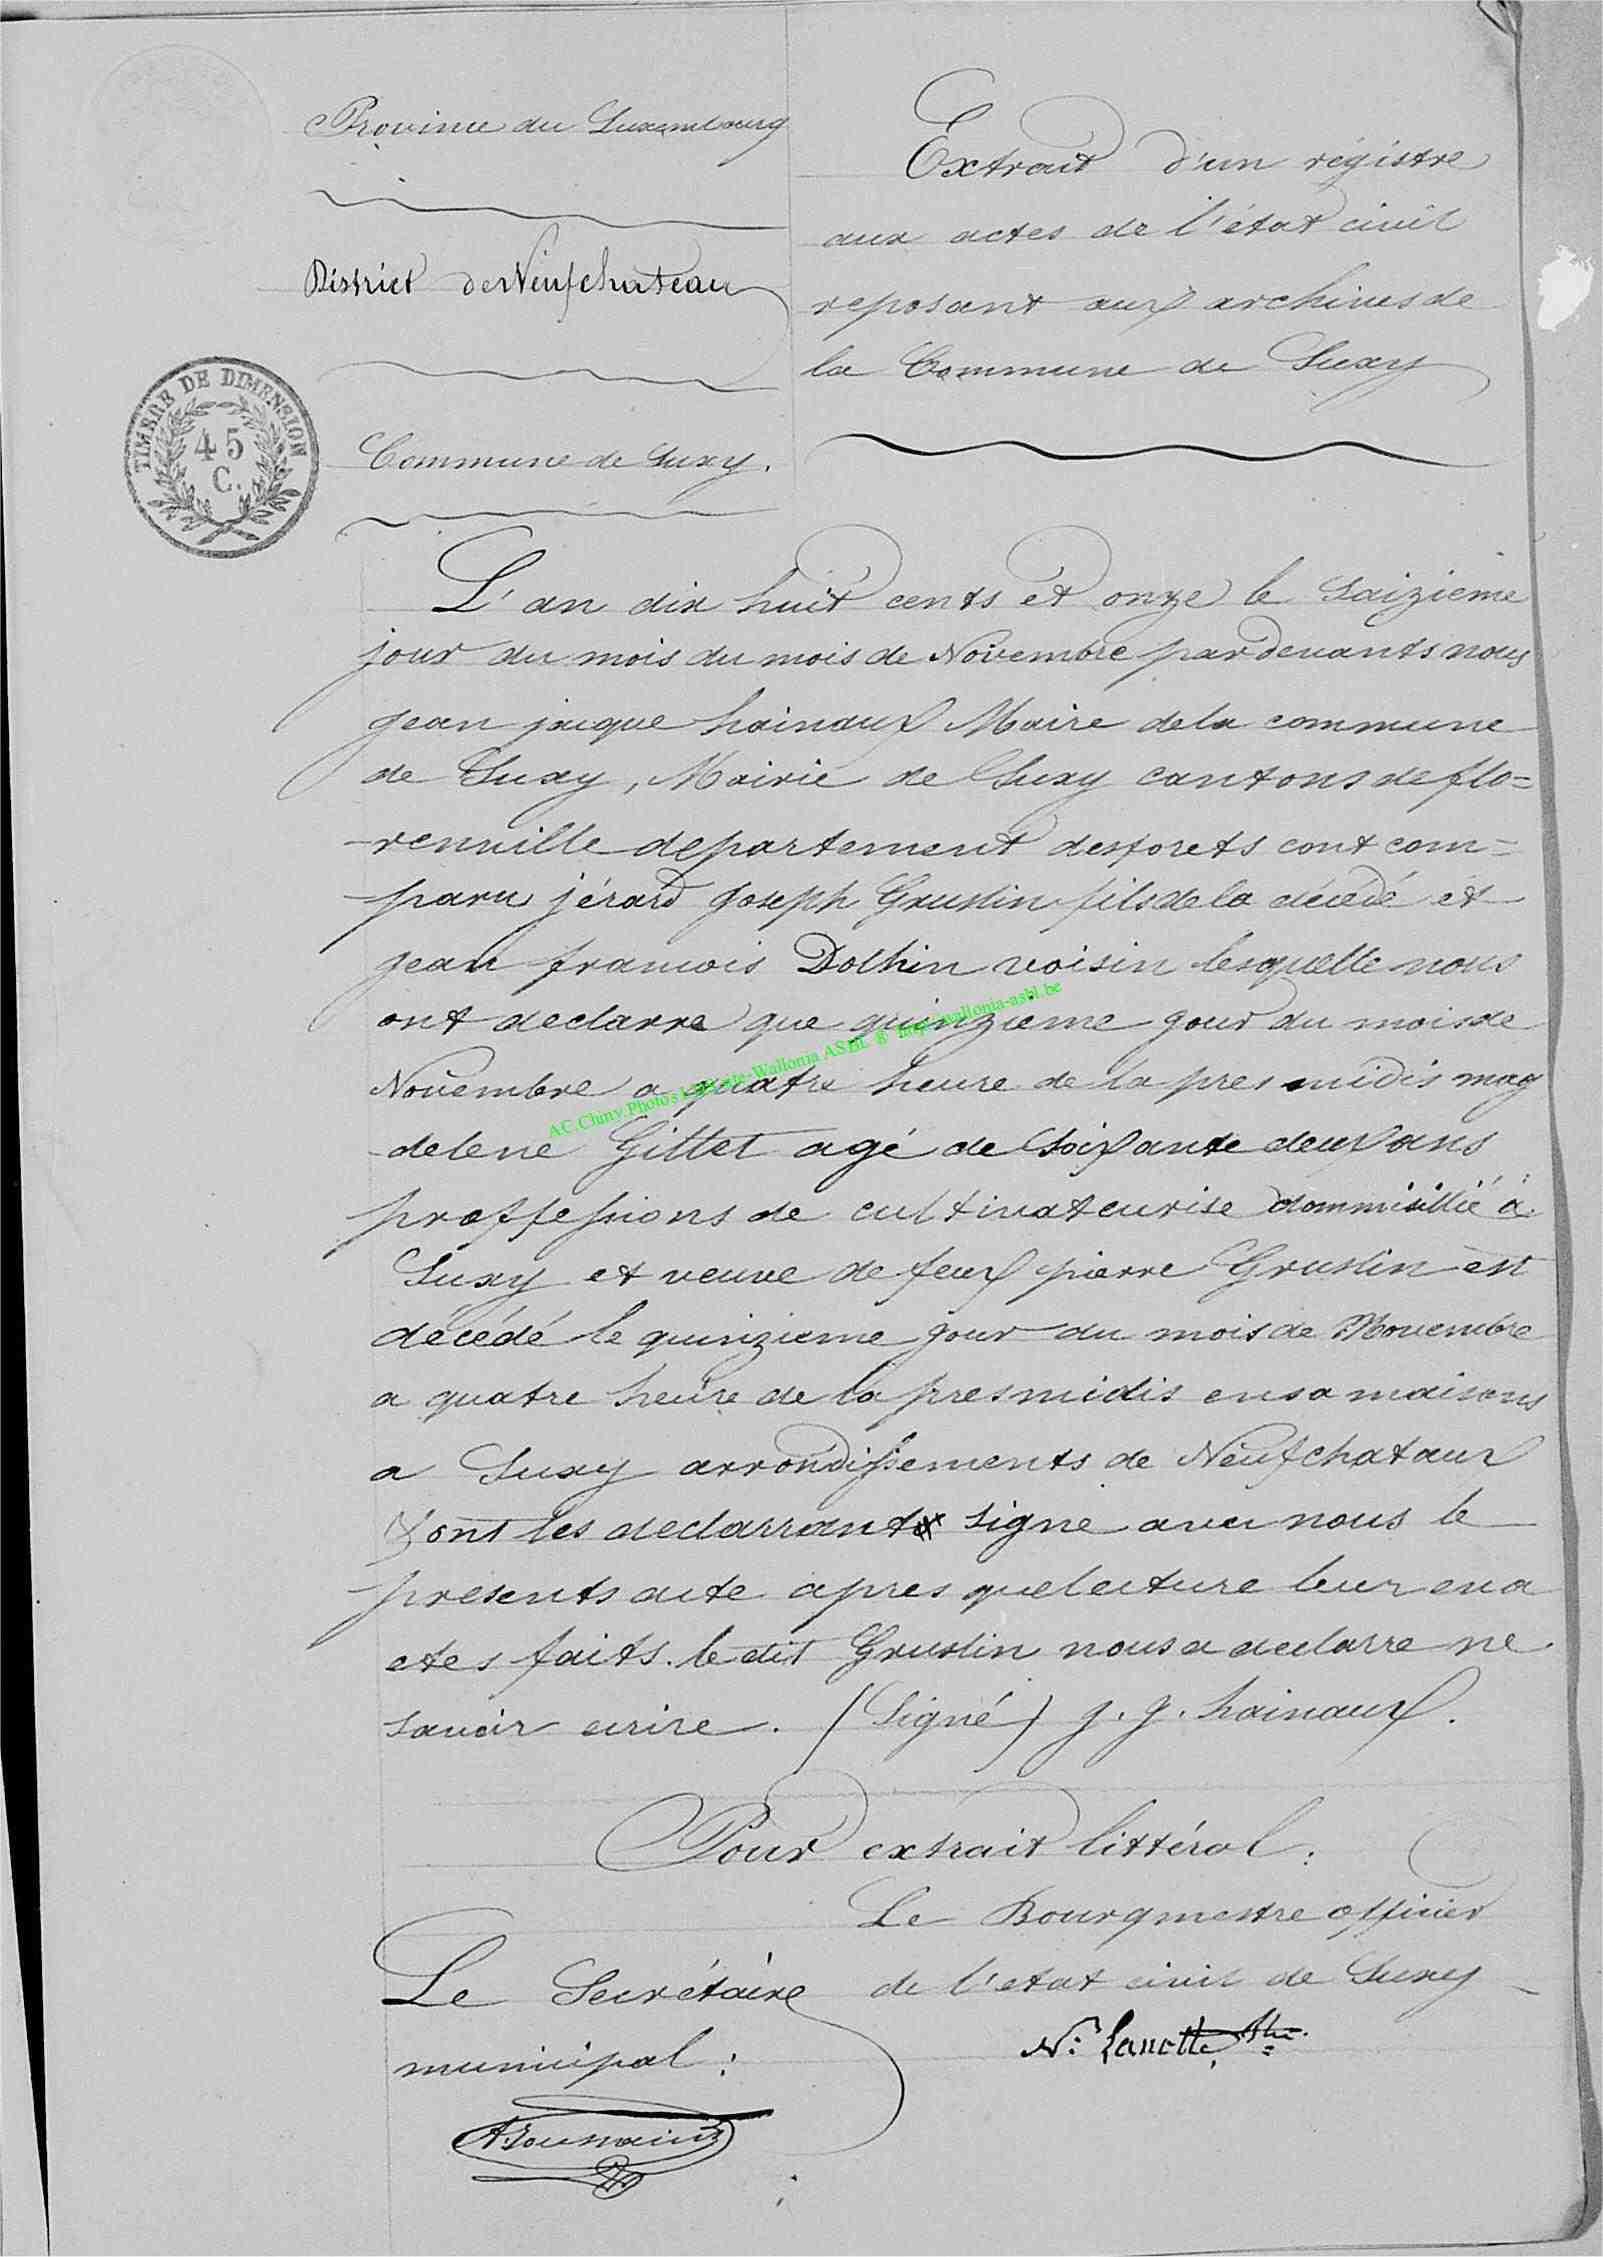 Province du Luxembourg
District de Neufchateau
TIMBRE DE DIMENSION
45
C.
Commune de Suxy.
Extrait d'un régistre
aux actes de l'état civil
reposant aux archives de
la Commune de Suxy
L'an dix huit cents et onze le Saizieme
jour du mois du mois de Novembre pardevants nous
jean jacque hainaux Maire dela commune
de Suxy, Mairie de Suxy cantons de flo=
renville departement desforets cont com=
paru jérard Joseph Gruslin fils de la décédé et
jean francois Dothin voisin lesquelle nous
ont declarre que quinzieme jour du mois de
Novembre a quatre heure de la pres midis mag
delene Gillet agé de Soixante deux ans
proffessions de cultivateurise dommisillié à
Suxy et veuve de feux pierre Gruslin est
décédé le quinzieme jour du mois de Novembre
a quatre heure de la pres midis en sa maisons
a Suxy arrondissements de Neufchataux
& ont les declarrant signe avec nous le
presents acte apres que lecture leur en a
etes faits. le dit Gruslin nous a declarre ne
savoir ecrire. (Signé) J. J. hainaux.
Pour extrait littéral:
Le Bourgmestre officier
de l'etat civil de Suxy
N: Lanotte
Le Secrétaire
municipal:
AC.Chiny.Photo's Luxroute-Wallonia ASBL @ http://wallonia-asbl.be